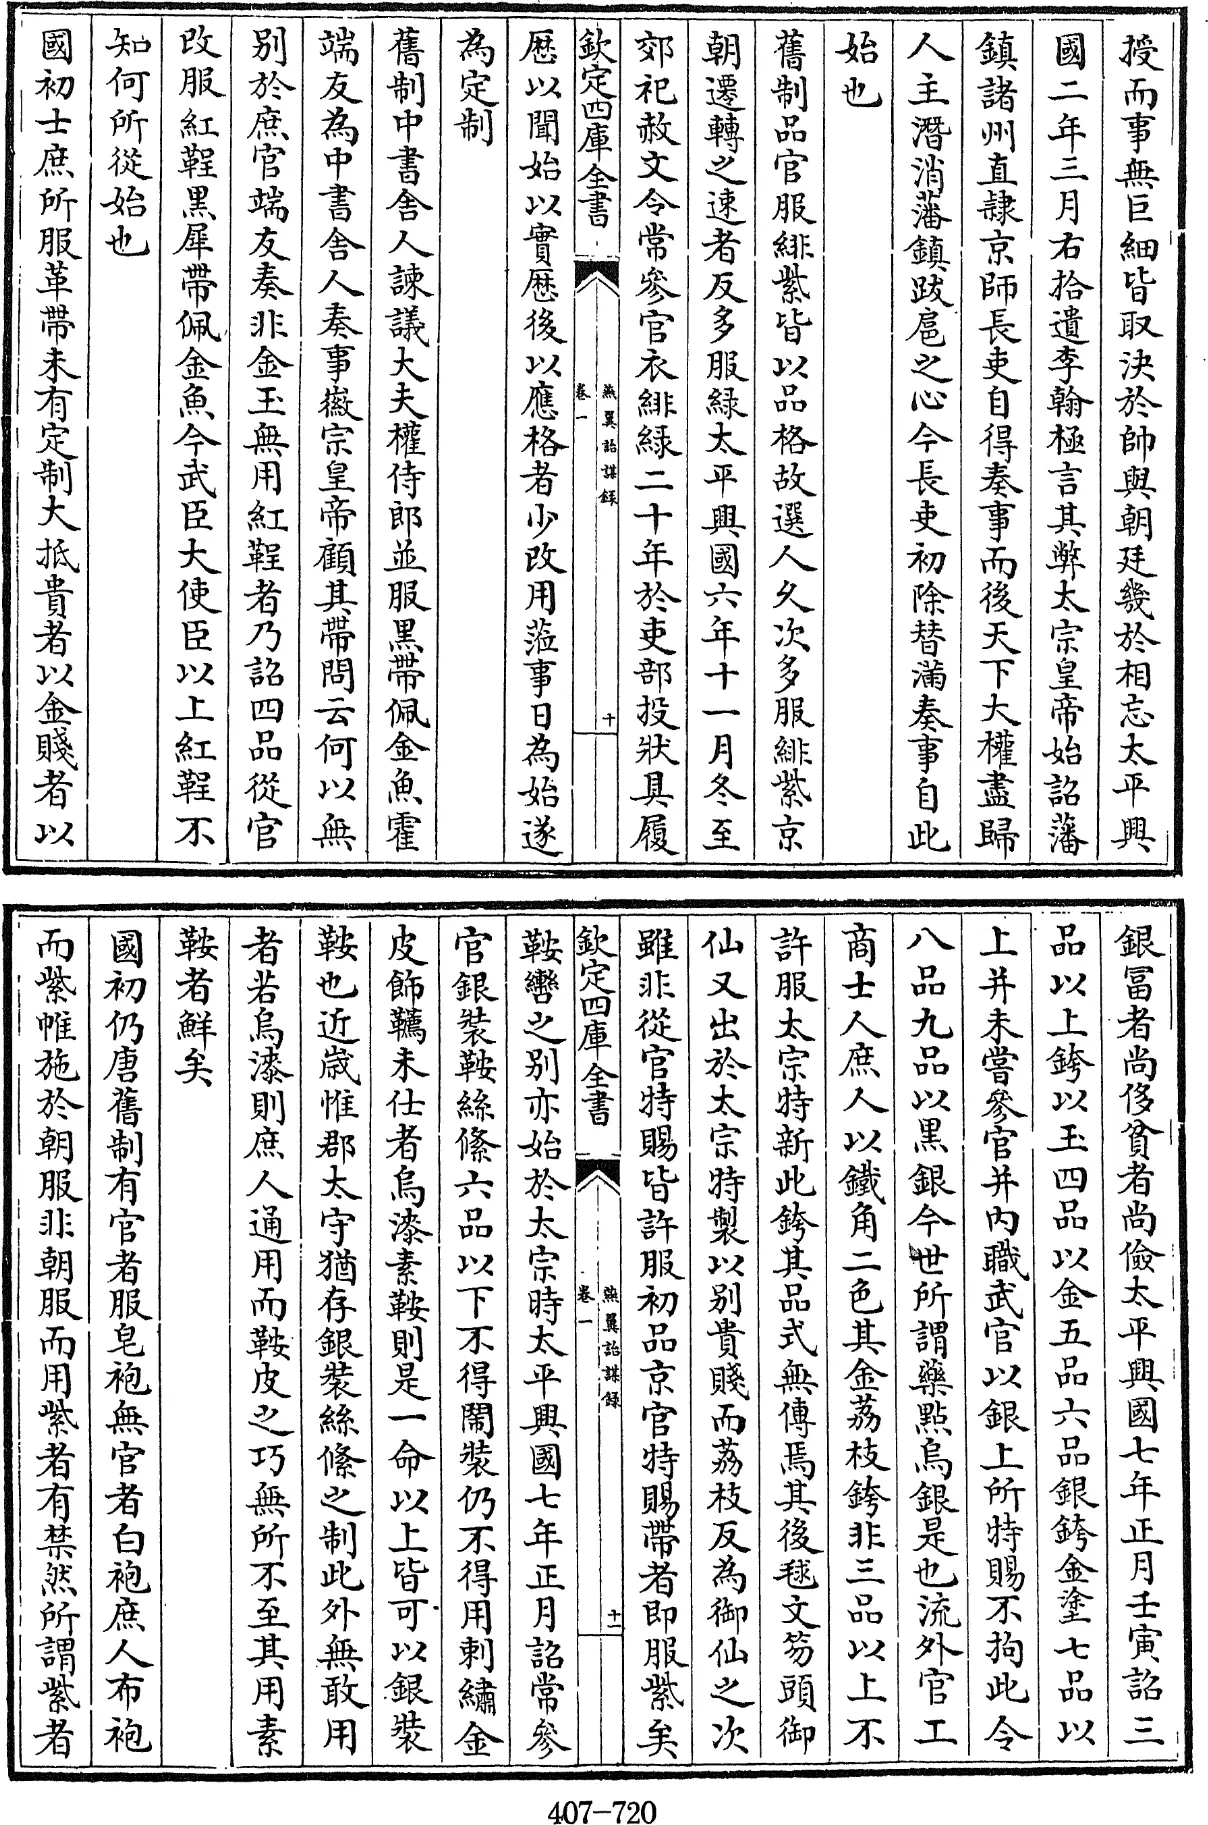 授而事無巨細皆取決於帥與朝廷幾於相忘太平興
國二年三月右拾遺李翰極言其弊太宗皇帝始詔藩
鎮諸州直隸京師長吏自得奏事而後天下大權盡歸
人主潛消藩鎮跋扈之心今長吏初除替滿奏事自此
始也
舊制品官服緋紫皆以品格故選人久次多服緋紫京
朝遷轉之速者反多服緑太平興國六年十一月冬至
郊祀赦文令常參官衣緋緑二十年於吏部投狀具履
欽定四庫全書
燕翼詒謀錄
卷一
十
歴以聞始以實歴後以應格者少改用蒞事日為始遂
為定制
舊制中書舍人諫議大夫權侍郎並服黑帶佩金魚霍
端友為中書舍人奏事徽宗皇帝顧其帶問云何以無
别於庶官端友奏非金玉無用紅鞓者乃詔四品從官
改服紅鞓黑犀帶佩金魚今武臣大使臣以上紅鞓不
知何所從始也
國初士庶所服革帶未有定制大抵貴者以金賤者以
銀冨者尚侈貧者尚儉太平興國七年正月壬寅詔三
品以上銙以玉四品以金五品六品銀銙金塗七品以
上并未嘗參官并内職武官以銀上所特賜不拘此令
八品九品以黑銀今世所謂藥點烏銀是也流外官工
商士人庶人以鐵角二色其金荔枝銙非三品以上不
許服太宗特新此銙其品式無傳焉其後毬文笏頭御
仙又出於太宗特製以别貴賤而荔枝反為御仙之次
雖非從官特賜皆許服初品京官特賜帶者即服紫矣
欽定四庫全書
燕翼詒謀録
卷一
十一
鞍轡之别亦始於太宗時太平興國七年正月詔常參
官銀裝鞍絲絛六品以下不得閙裝仍不得用刺繡金
皮飾韉未仕者烏漆素鞍則是一命以上皆可以銀裝
鞍也近歲惟郡太守猶存銀裝絲絛之制此外無敢用
者若烏漆則庶人通用而鞍皮之巧無所不至其用素
鞍者鮮矣
國初仍唐舊制有官者服皂袍無官者白袍庶人布袍
而紫惟施於朝服非朝服而用紫者有禁然所謂紫者
407-720